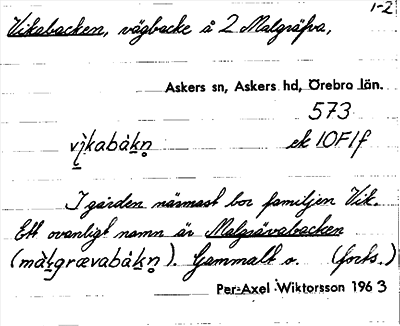 1-2
Vikabacken, vägbacke å 2 Malgräfva,
Askers sn, Askers hd, Örebro län.
573
vi̭kabàkn̥ ek 10F1f
I gården närmast bor familjen Vik.
Ett ovanligt namn är Malgrävabacken
(màlgrævabàkn̥). Gammalt o. (forts.)
Per-Axel Wiktorsson 1963